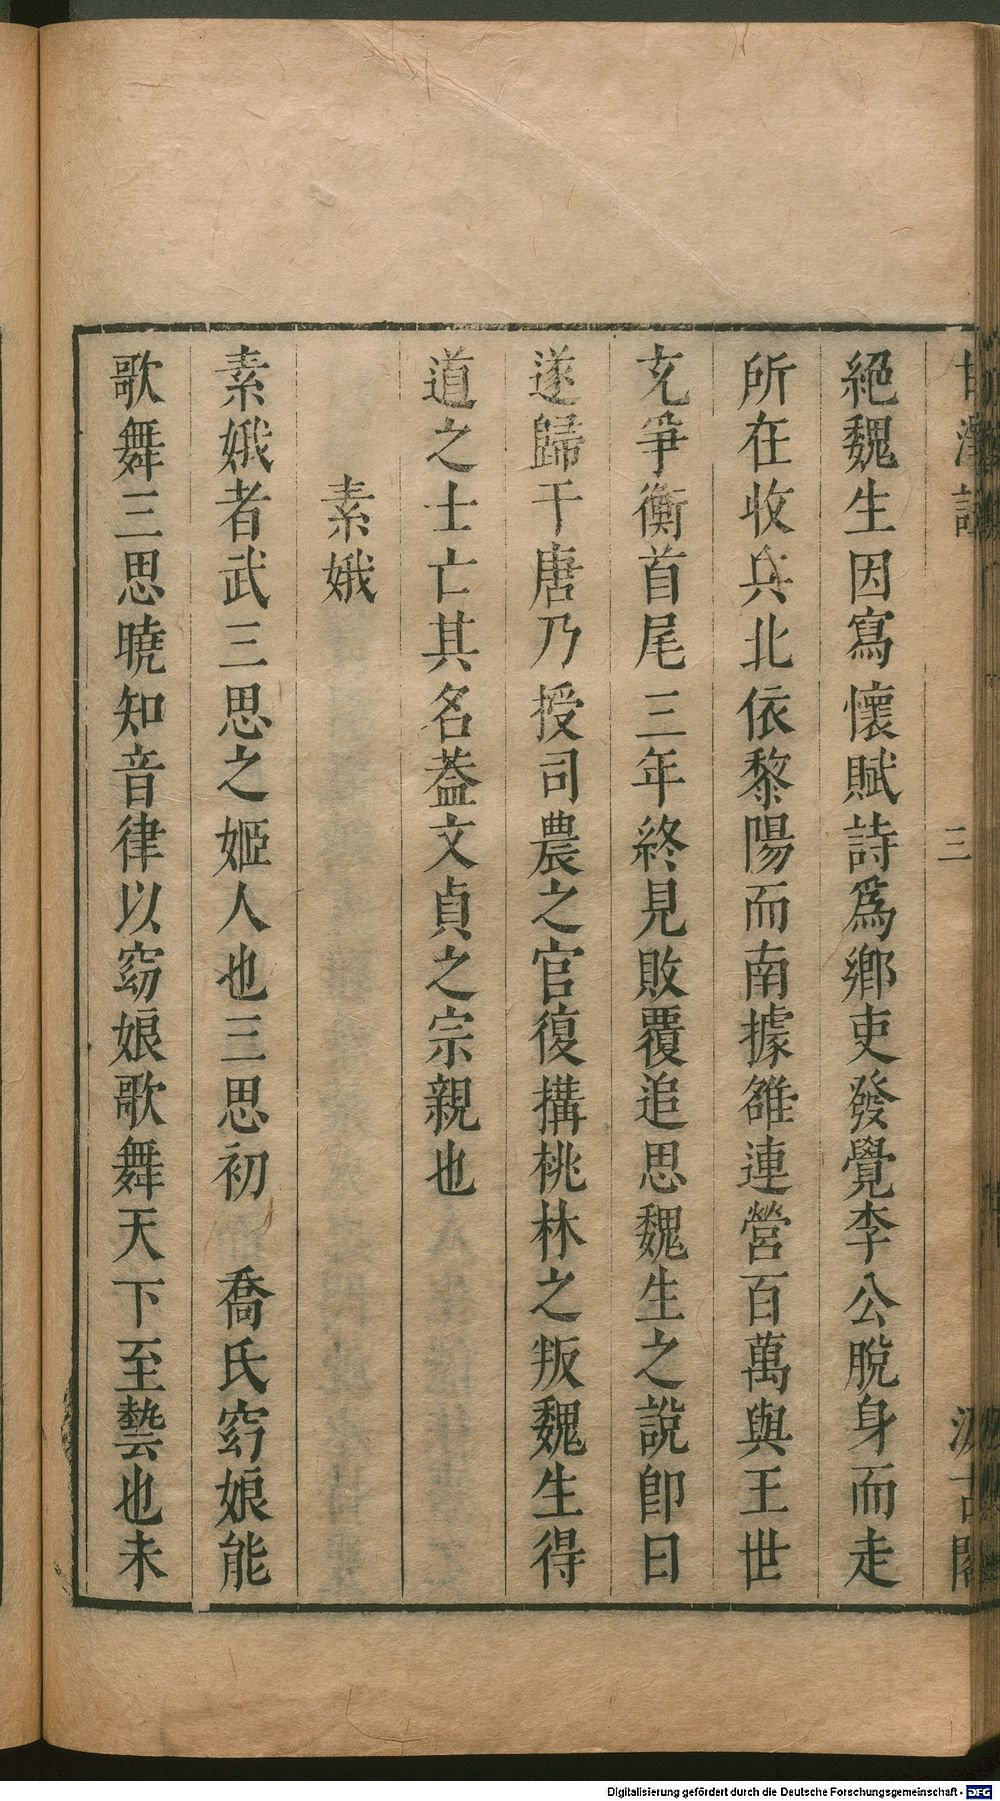 甘澤謠 三 汲古閣
絕魏生因寫懷賦詩爲鄉吏發覺李公脫身而走
所在收兵北依黎陽而南據雒連營百萬與王世
充爭衡首尾三年終見敗覆追思魏生之說卽日
遂歸于唐乃授司農之官復搆桃林之叛魏生得
道之士亡其名葢文貞之宗親也
素娥
素娥者武三思之姬人也三思初 喬氏窈娘能
歌舞三思曉知音律以窈娘歌舞天下至藝也未
Digitalisierung gefördert durch die Deutsche Forschungsgemeinschaft - DFG